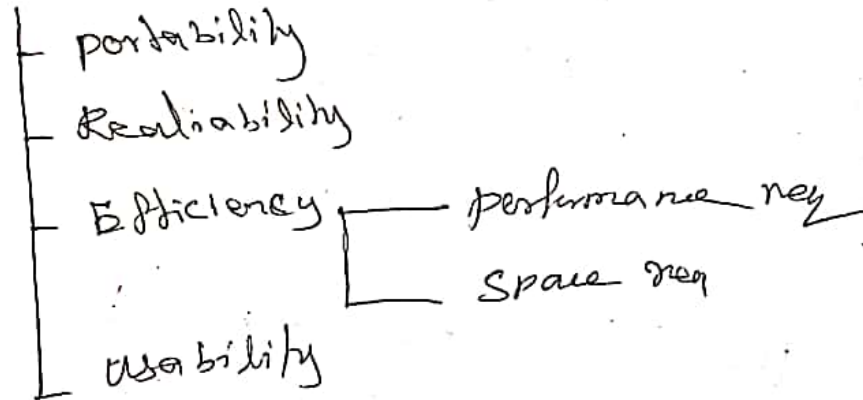 portability
Realiability
Efficiency
performance req
Space req
usability